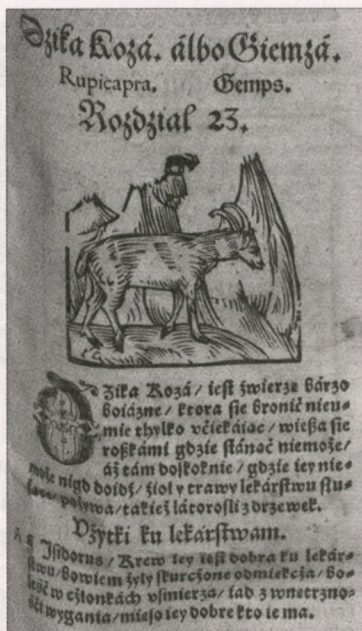 Dzika Kozá. álbo Giemzá.
Rupicapra. Gemps.
Rozdział 23.
DZika Kozá / iest źwierze bárzo
boiáźne / ktora sie bronić nieu⸗
mie thylko vćiekáiac / wiesza sie
rożkámi gdzie stánąć niemoże /
áż tám doskoknie / gdzie iey nie⸗
może nigd doidź / źioł y trawy lekárstwu slu⸗
pożywa / tákież látorosli z drzewek.
Vżytki ku lekárstwam.
Isidorus / Krew iey iest dobra ku lekár⸗
stwu / Bowiem żyły skurczone odmiekcża / Bo⸗
leść w członkách vśmierza / iad z wnetrzno⸗
śći wygania / mieso iey dobre kto ie ma.